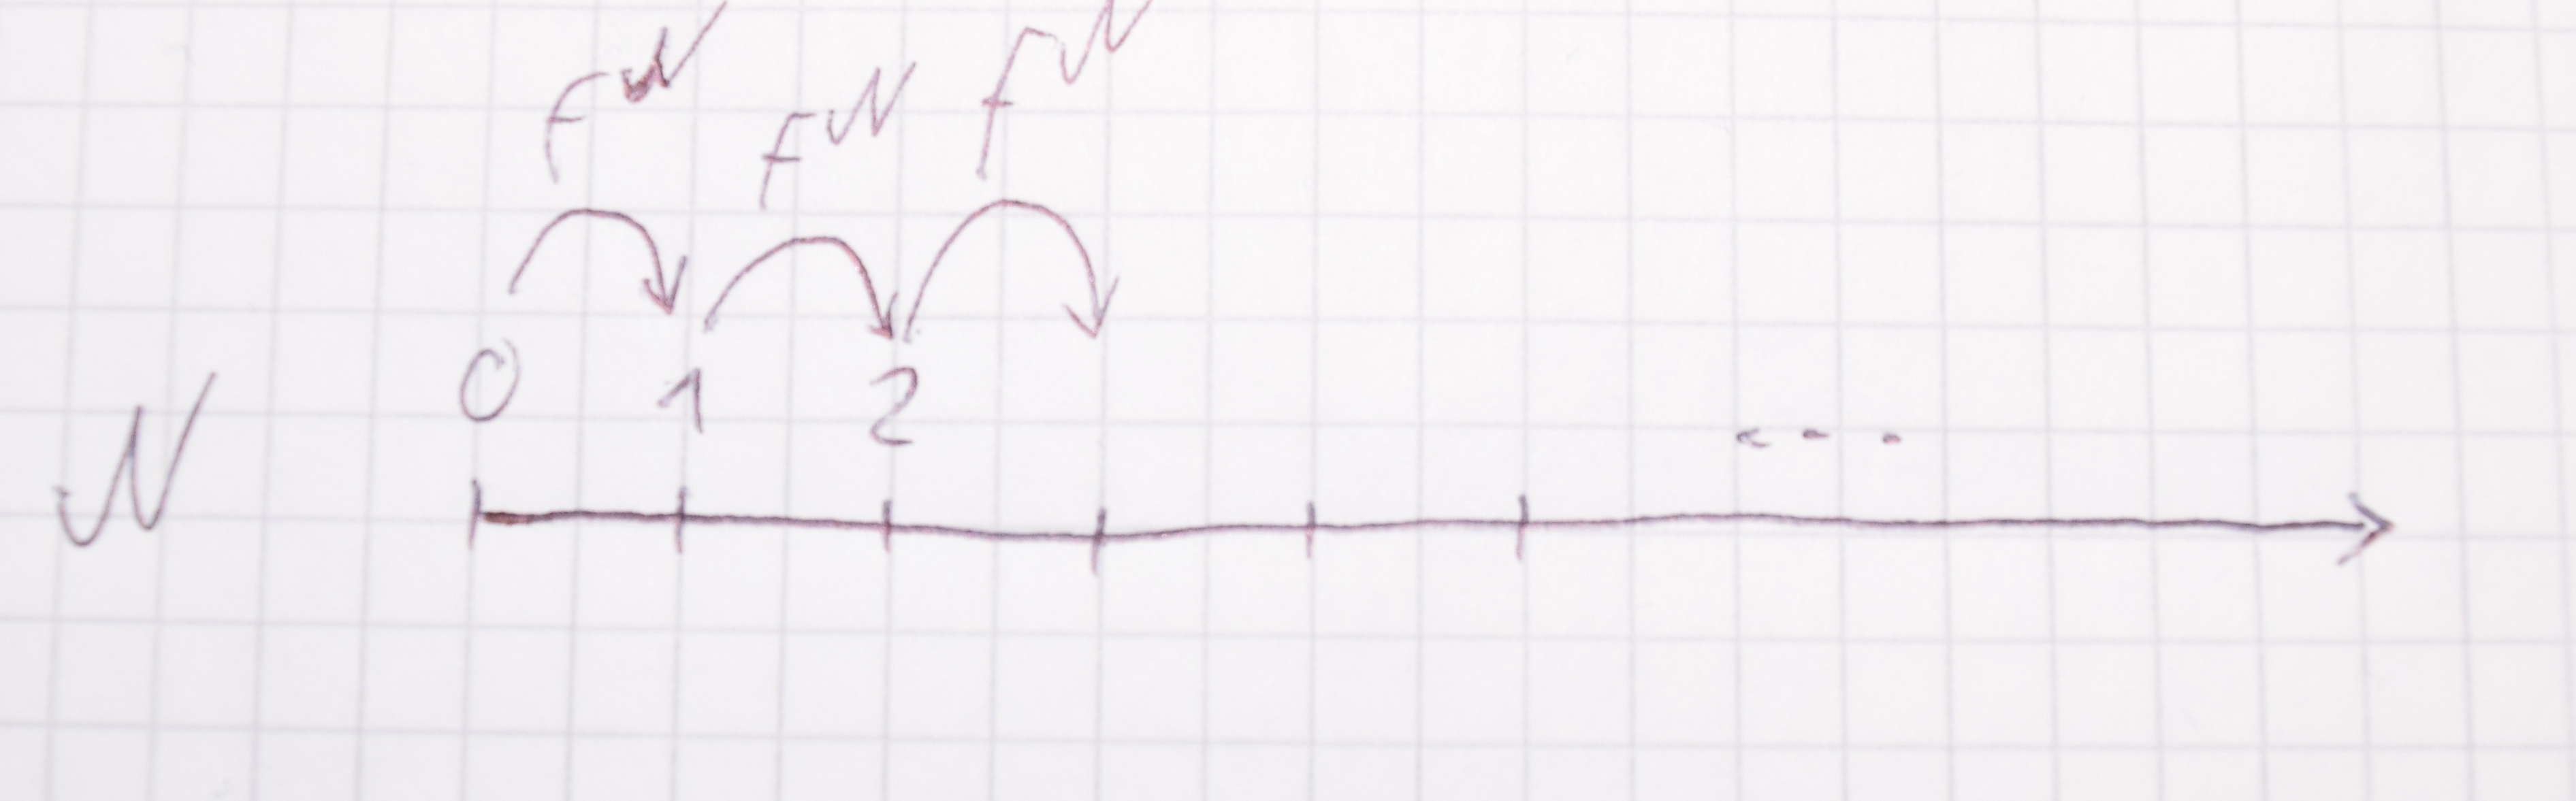 f^N f^N f^N
0 1 2
N ...